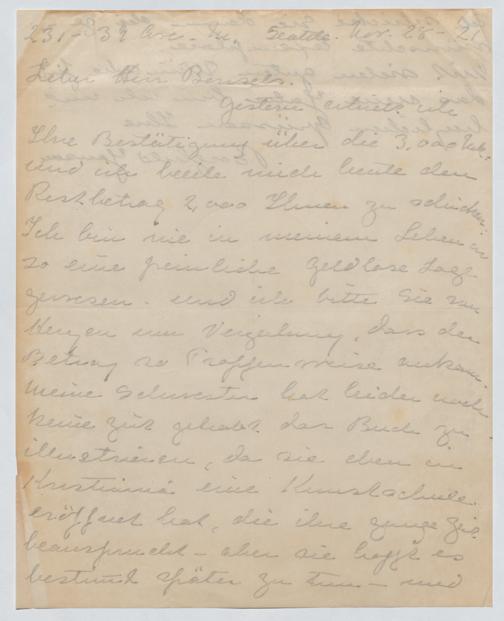 231 - 39 Ave. N. Seattle. Nov. 28 - 21
Lieber Herr
Gestern erhielt ich
Ihre Bestätigung über die 3,000 Mk.
und ich beeile mich heute den
Restbetrag 2,000 Ihnen zu schicken.
Ich bin nie in meinem Leben in
so eine peinliche Geldlose Lage
gewesen - und ich bitte Sie von
Herzen um Verzeihung, dass der
Betrag so Tropfenweise ankam.
Meine Schwester hat leider noch
keine Zeit gehabt das Buch zu
illustrieren, da sie eben in
Kristiania eine Kunstschule
eröffnet hat, die ihre ganze Zeit
beansprucht - aber sie hofft es
bestimmt später zu tun - und